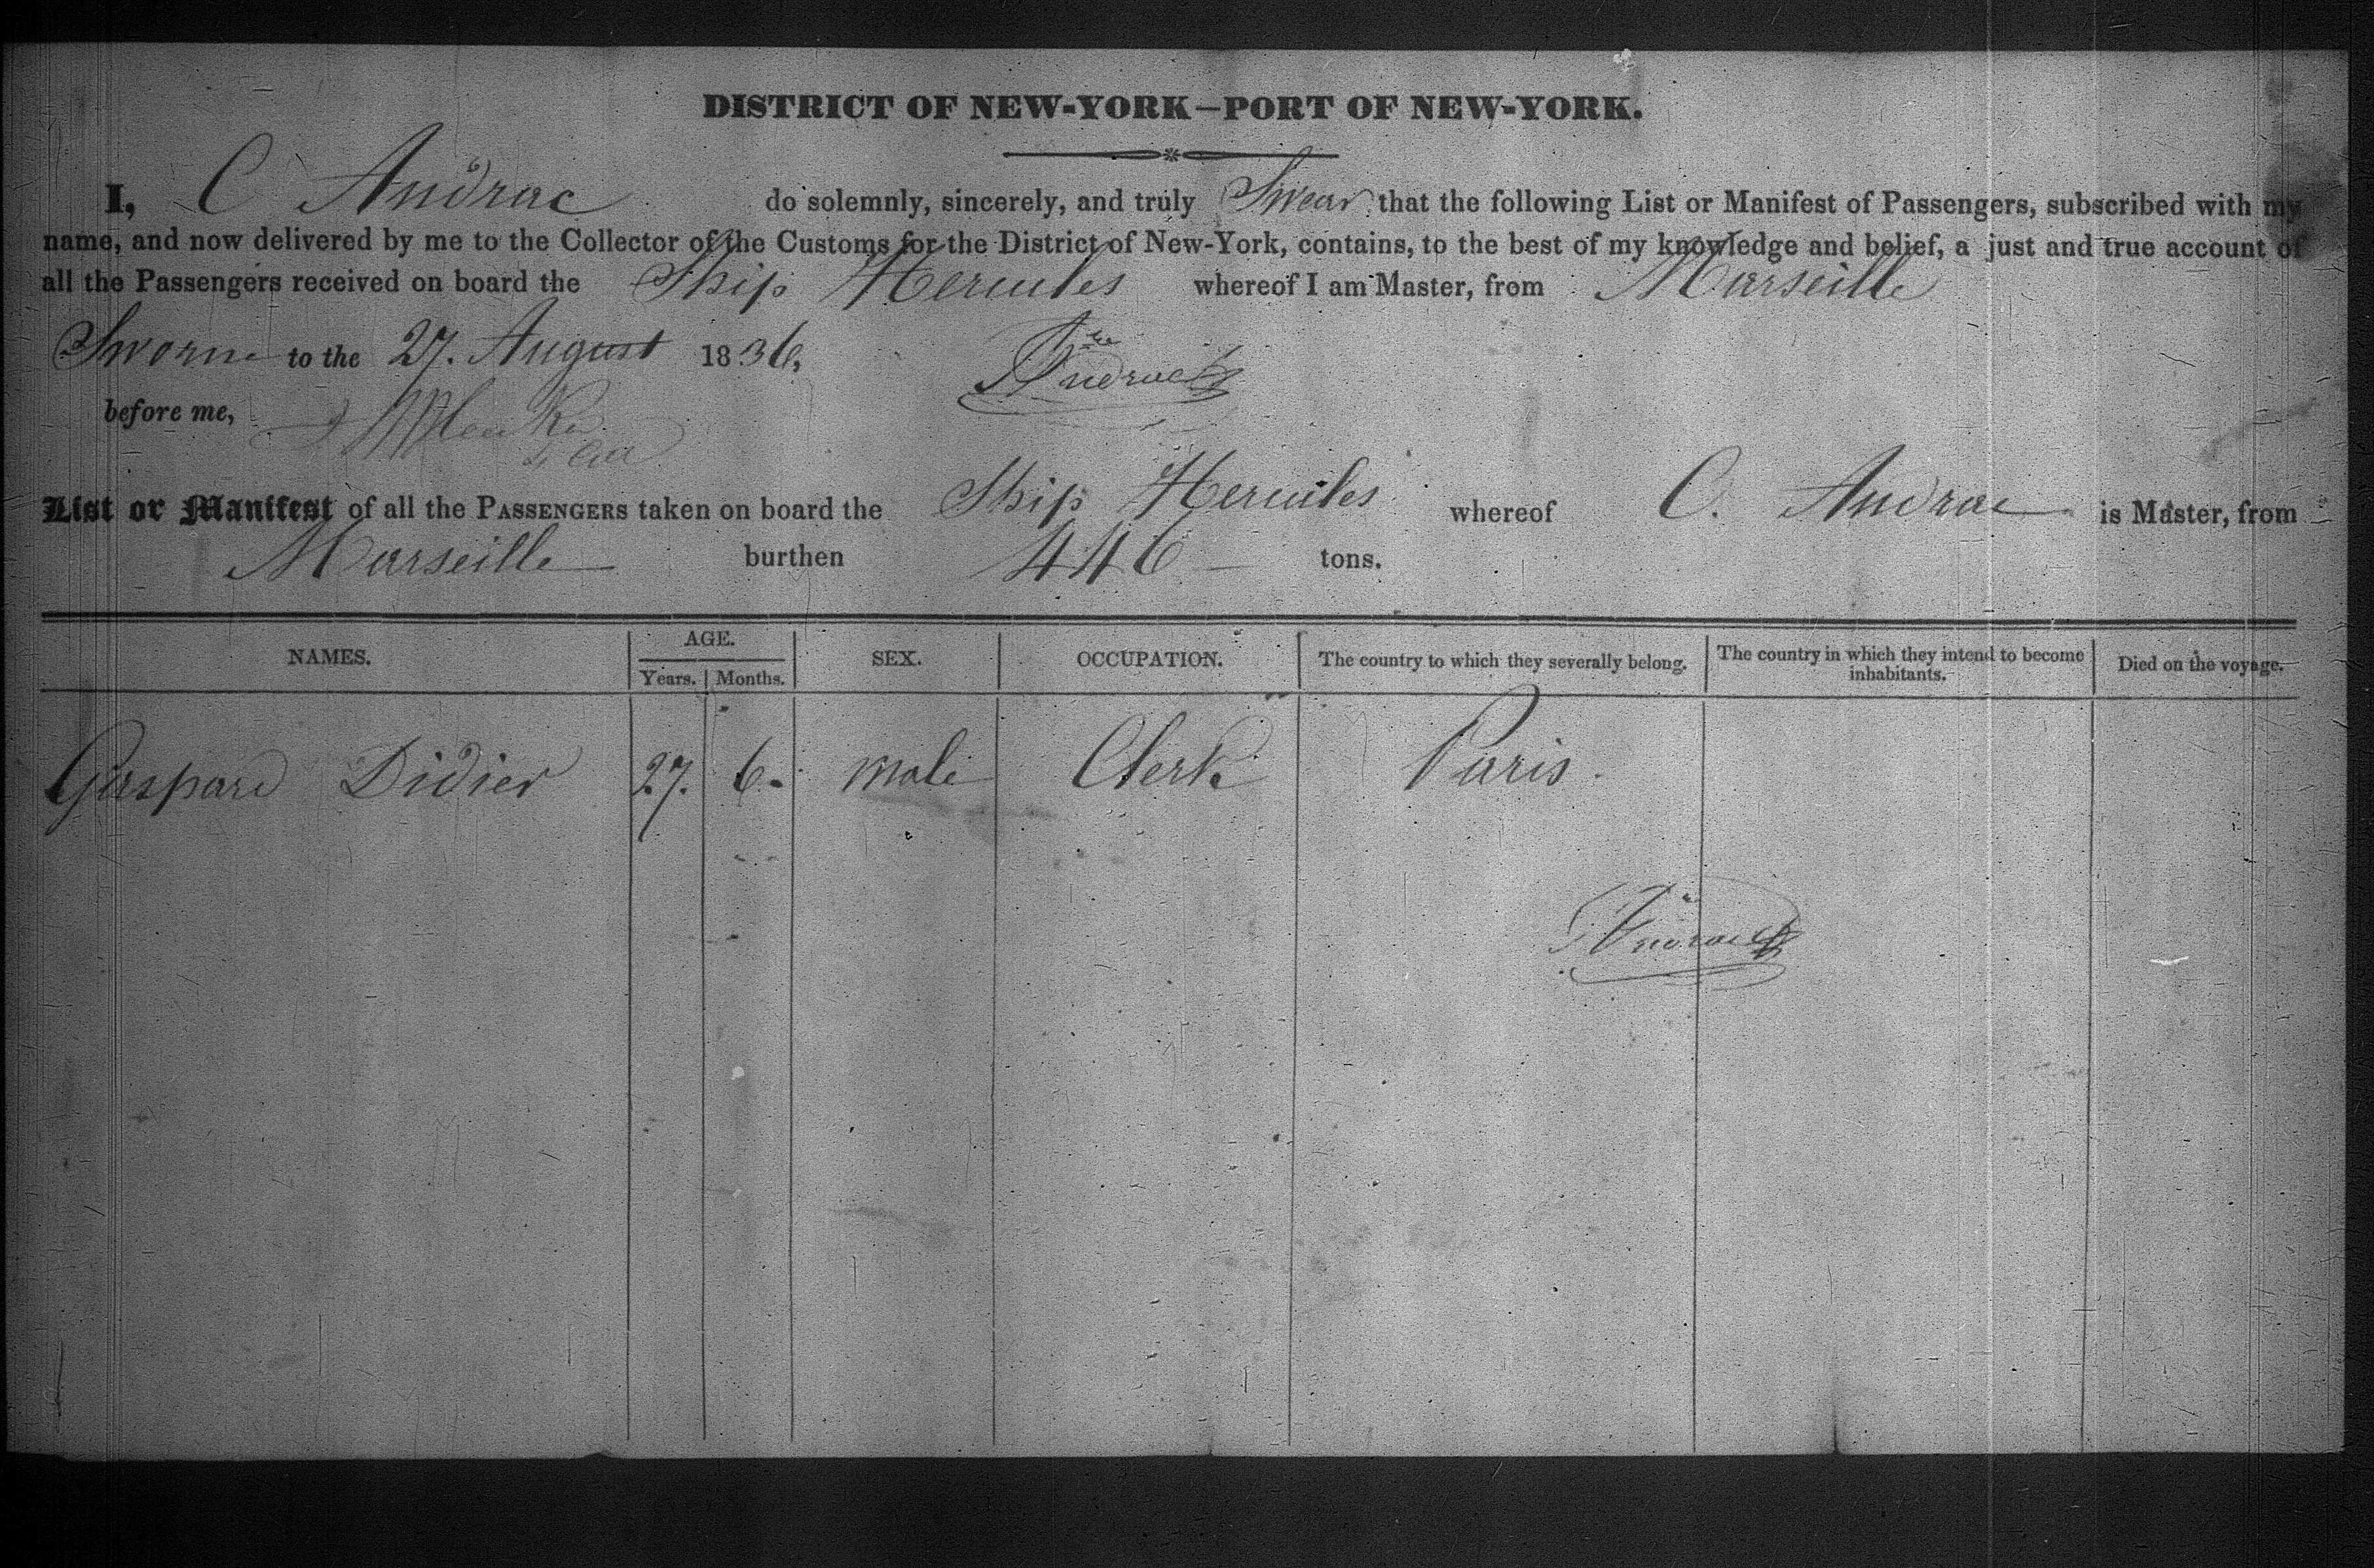 DISTRICT OF NEW-YORK—PORT OF NEW-YORK.
I, C Andrac do solemnly, sincerely, and truly Swear that the following List or Manifest of Passengers, subscribed with my
name, and now delivered by me to the Collector of the Customs for the District of New-York, contains, to the best of my knowledge and belief, a just and true account of
all the Passengers received on board the Ship Hercules whereof I am Master, from Marseille
Sworn to the 27. August 1836, Andrac
before me,
List or Manifest of all the PASSENGERS taken on board the Ship Hercules whereof C. Andrac is Master, from
Marseille burthen 446 tons.
NAMES. AGE. Years. Months. SEX. OCCUPATION. The country to which they severally belong. The country in which they intend to become inhabitants. Died on the voyage.
Gaspard Didier 27. 6. male Clerk Paris.
Andrac